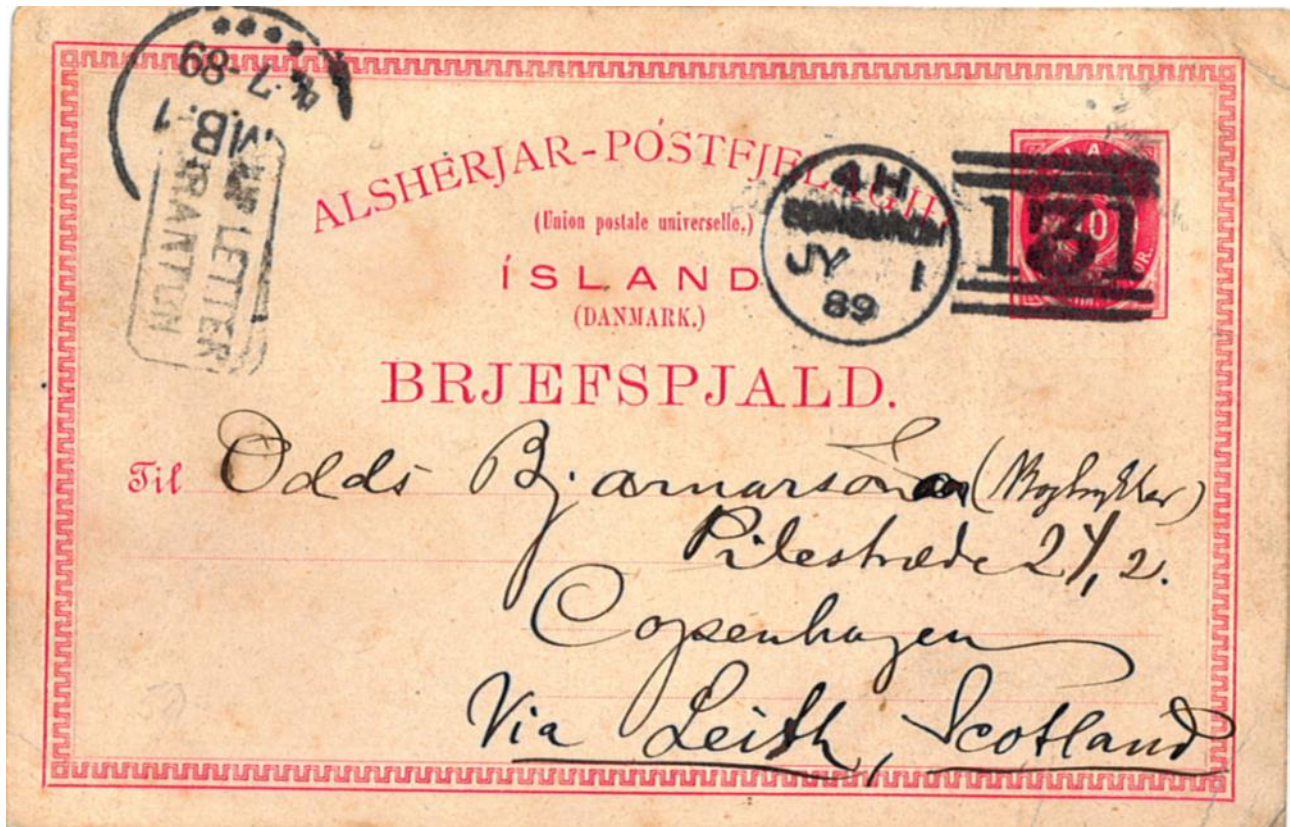 4.7-89
MB.1
LETTER
GRANTON
ALSHERJAR-PÓSTFJELAGIÐ
(Union postale universelle.)
ÍSLAND
(DANMARK.)
4H
EDINBURGH
JY 1
89
131
BRJEFSPJALD.
Til Odds Bjarnarsonar
Pilestræde
Copenhagen
Via Leith, Scotland